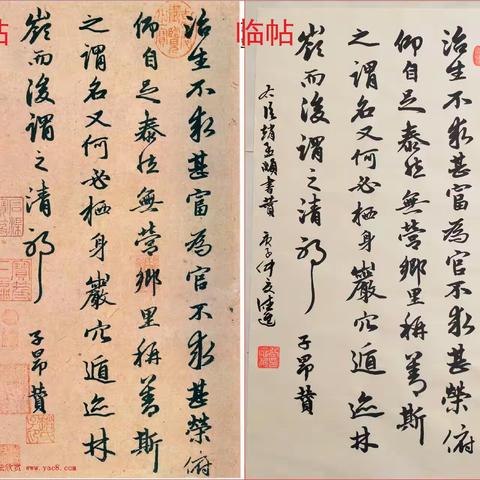 帖
治生不求甚富為官不求甚榮俯
仰自足泰然無營鄉里稱善斯
之謂名又何必栖身巖穴遁迹林
嶺而後謂之清邪
子昂贊
法欣赏 www.yac8.com
临帖
治生不求甚富為官不求甚榮俯
仰自足泰然無營鄉里稱善斯
之謂名又何必栖身巖穴遁迹林
嶺而後謂之清邪
子昂贊
趙孟頫書贊 庚子仲